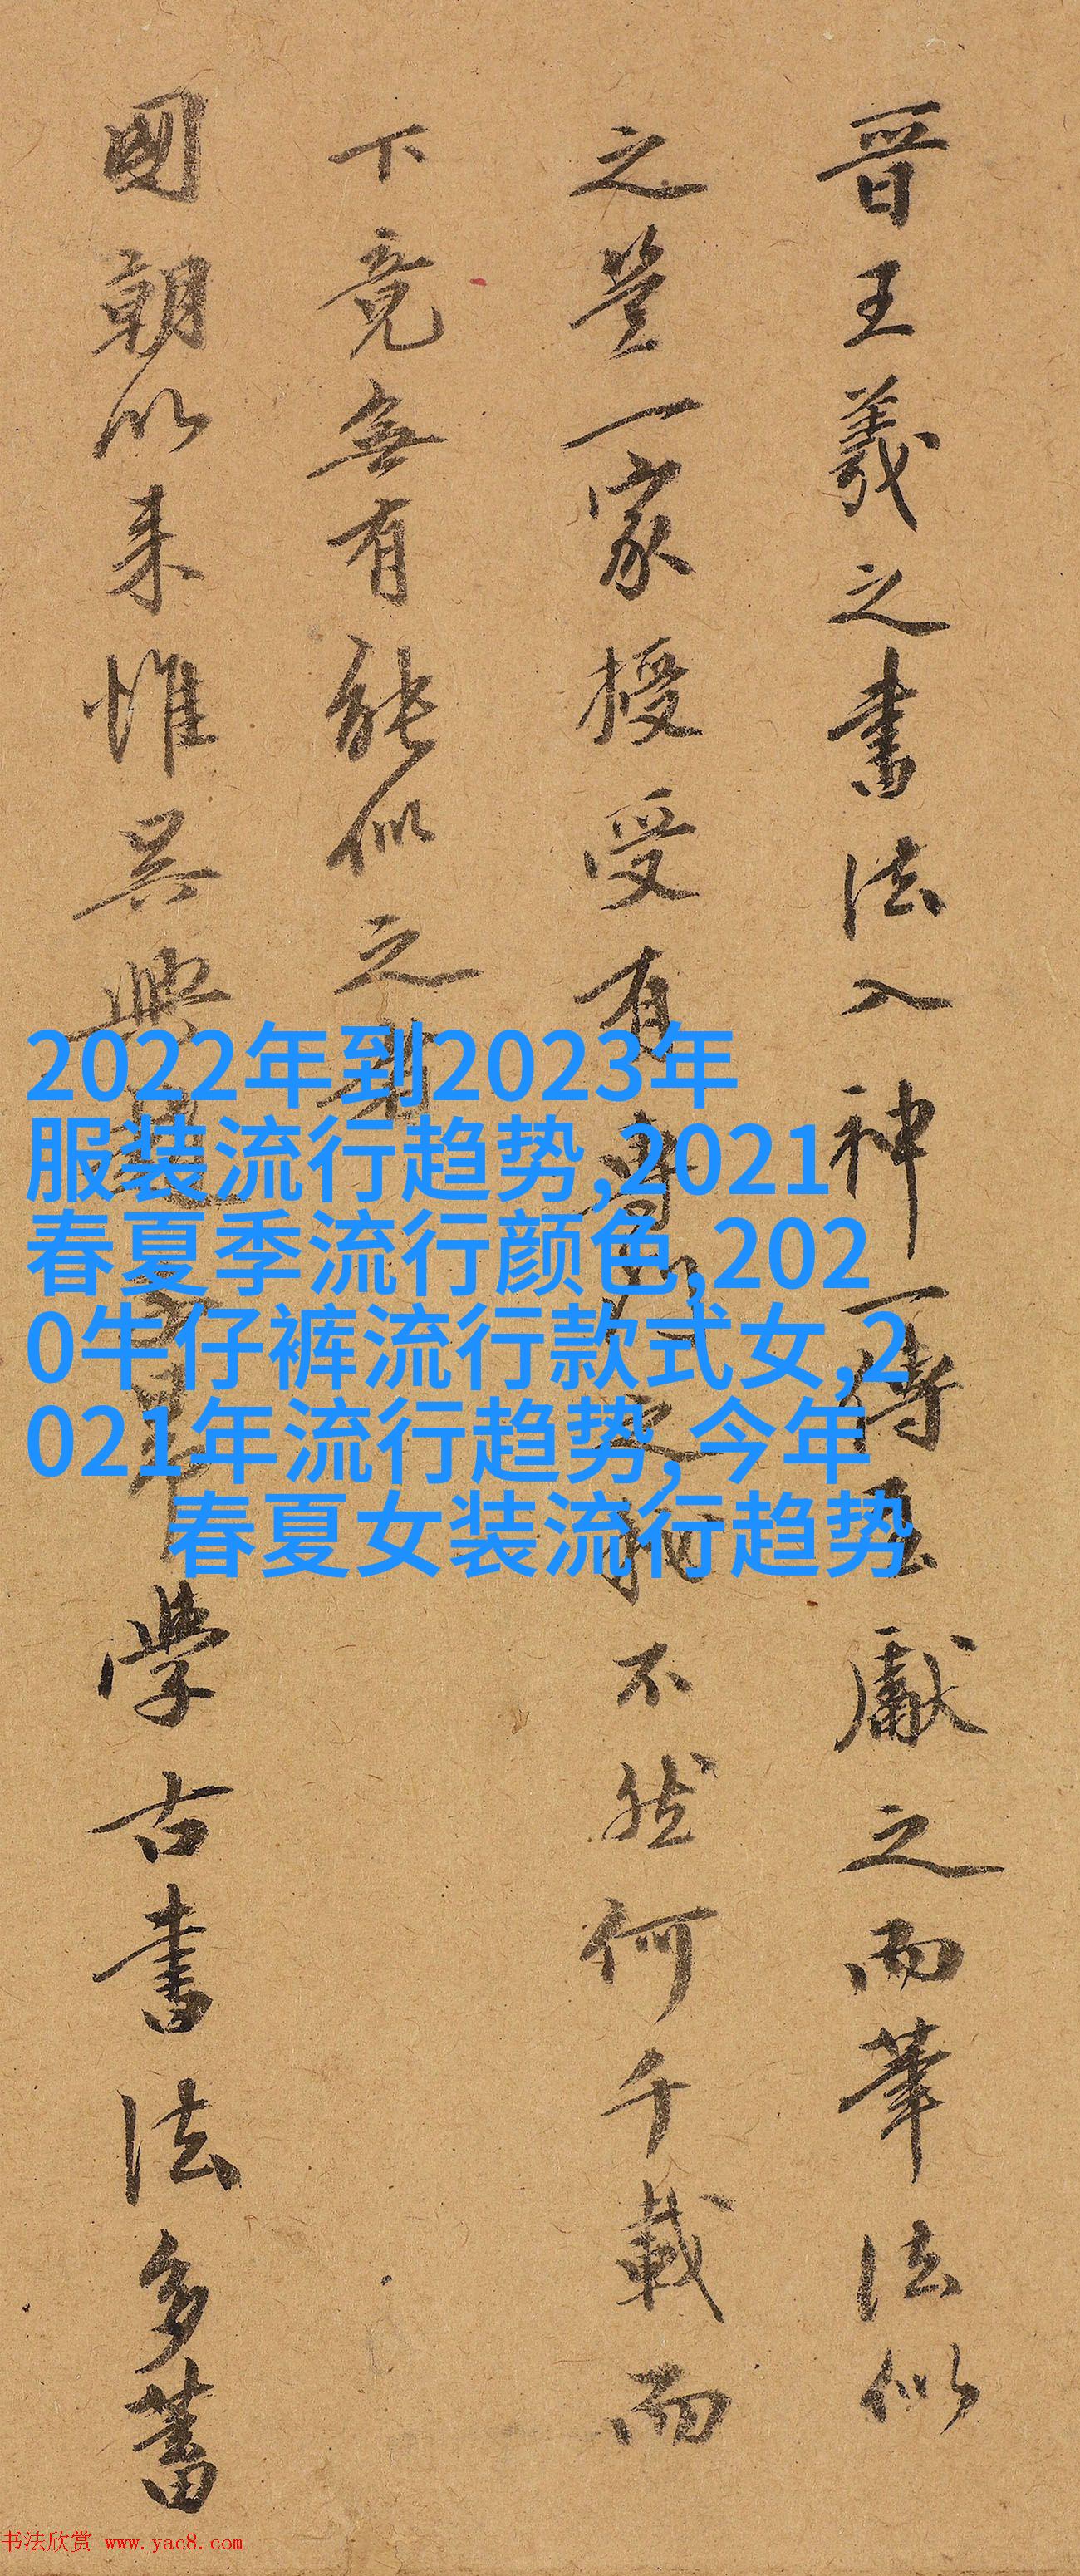 晉王羲之書法入神一傳至獻之而筆法似
之豈一家授受有專門之不然何千載而
下竟無有能似之者
國朝以來惟吳興學古書法多蓄
2022年到2023年
服装流行趋势,2021
春夏季流行颜色,202
0牛仔裤流行款式女,2
021年流行趋势,今年
春夏女装流行趋势
书法欣赏 www.yac8.com